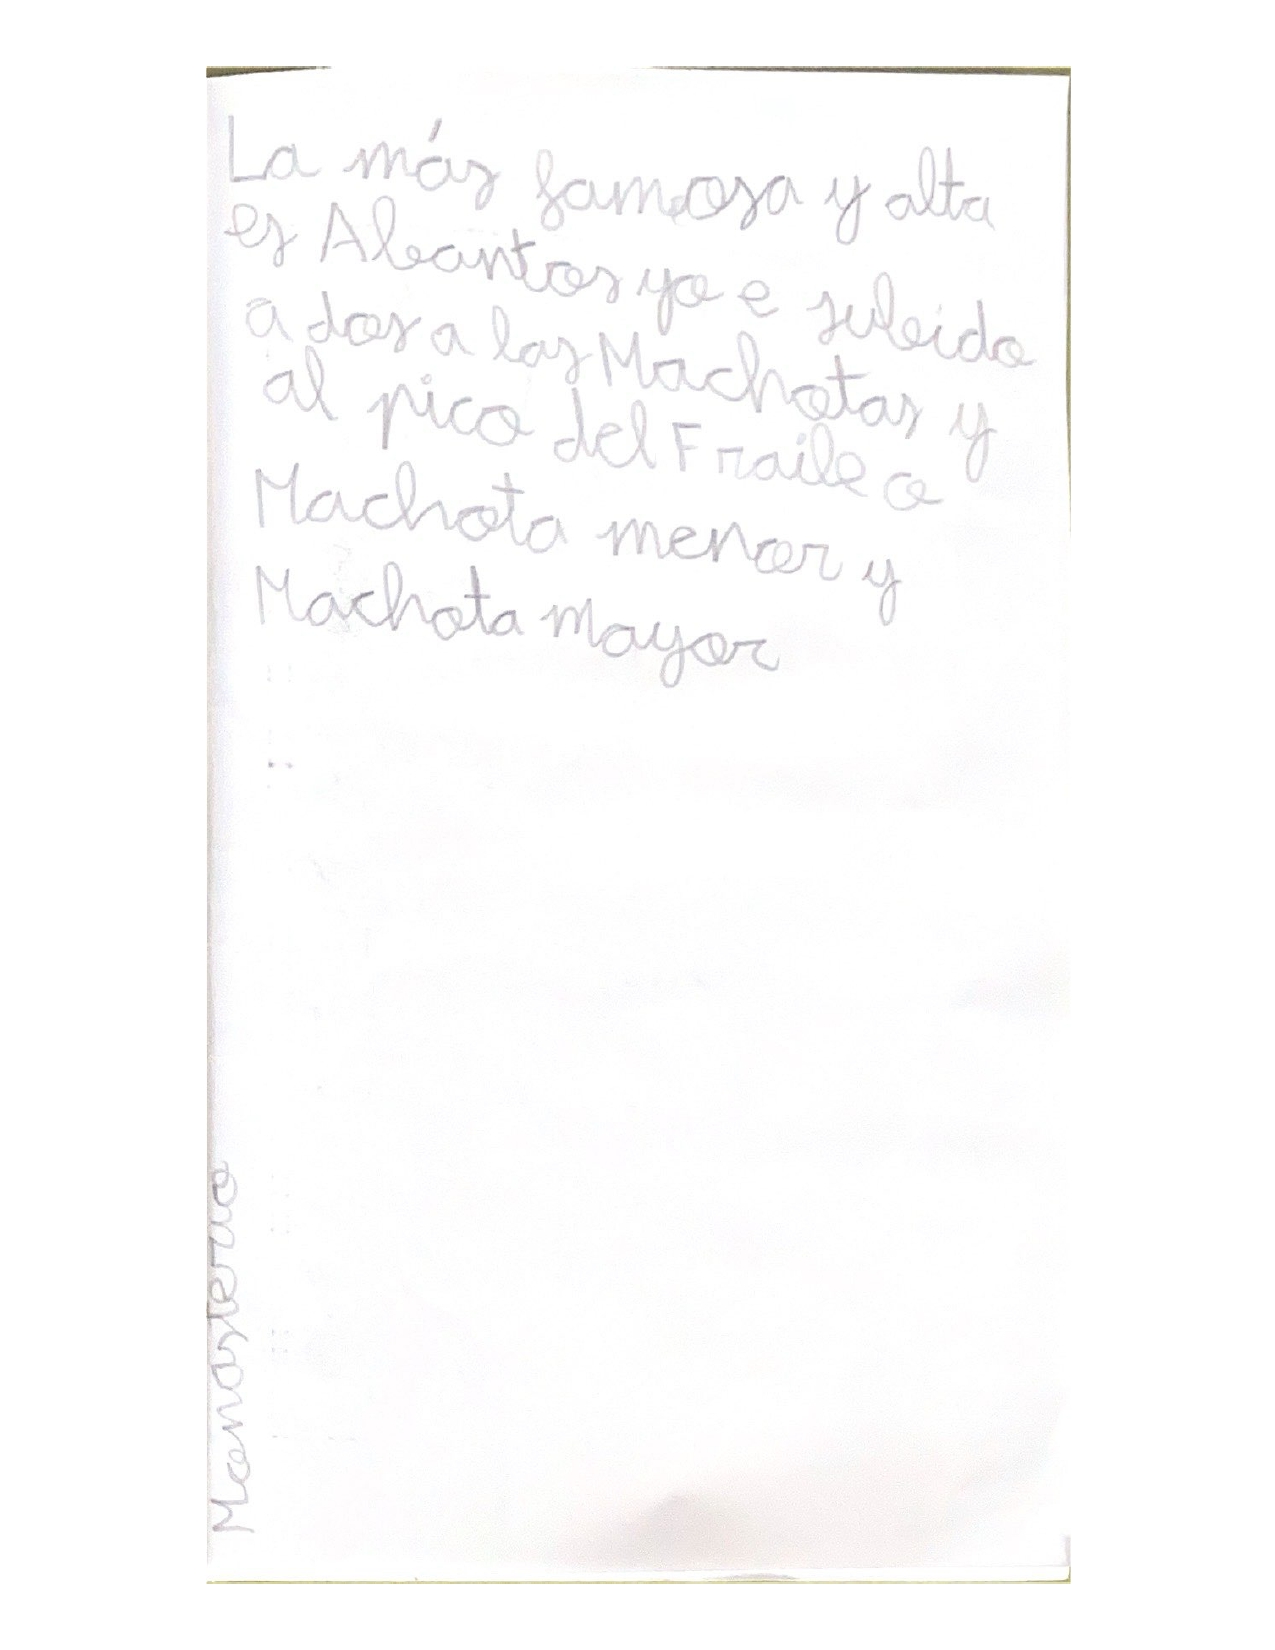 La más famosa y alta
es Abantos yo e subido
a dos a las Machotas y
al pico del Fraile o
Machota menor y
Machota mayor